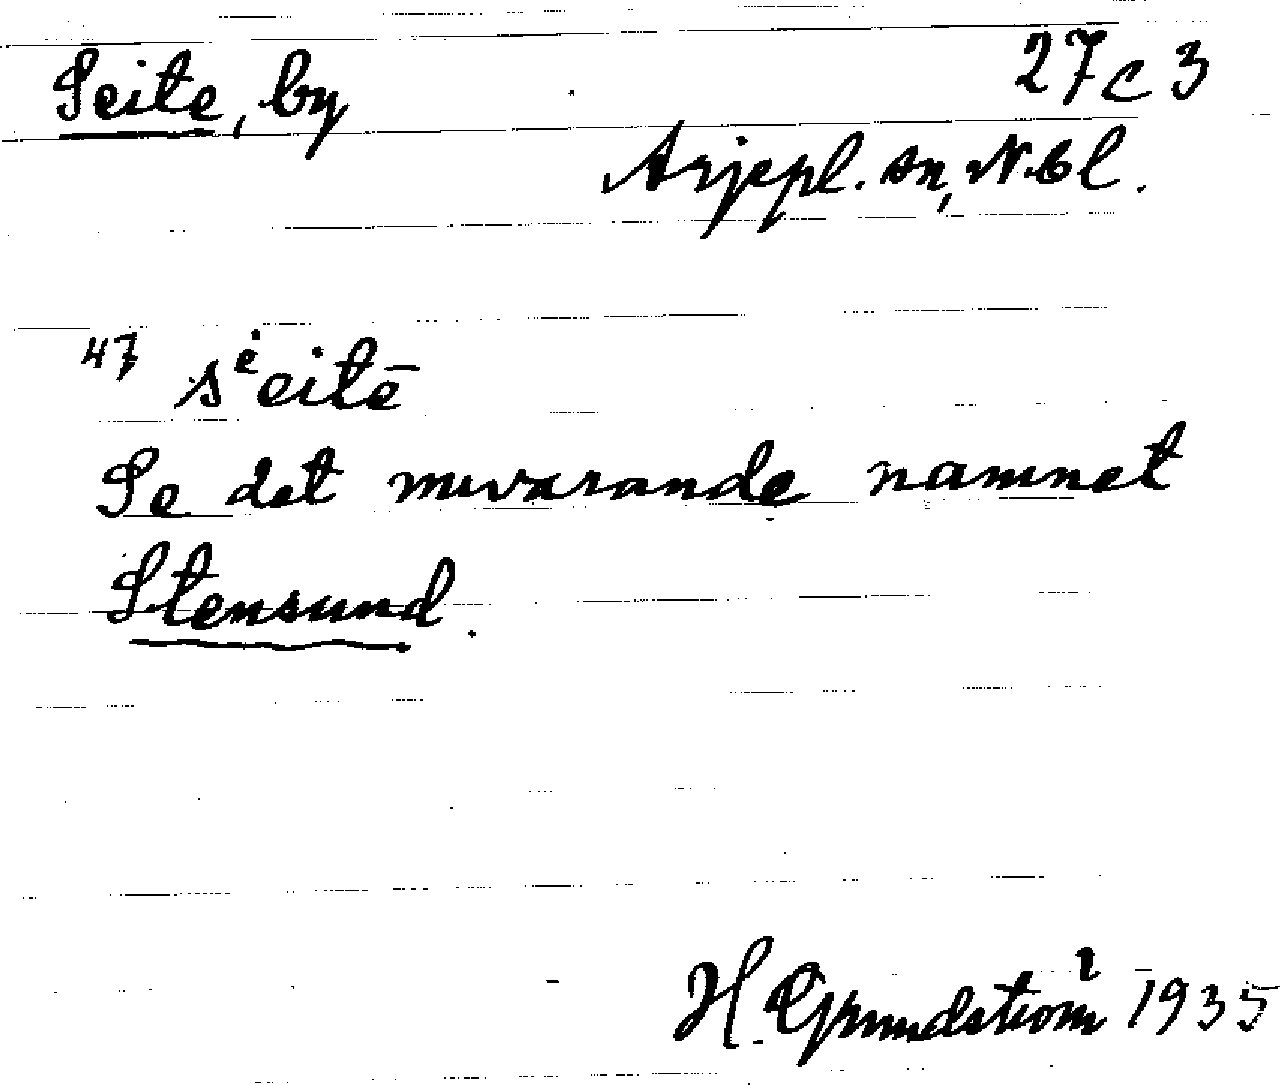 Seite, by
27 c 3
Arjepl. sn, N.bl.
47 sėeitē
Se det nuvarande namnet
Stensund.
H. Grundström 1935